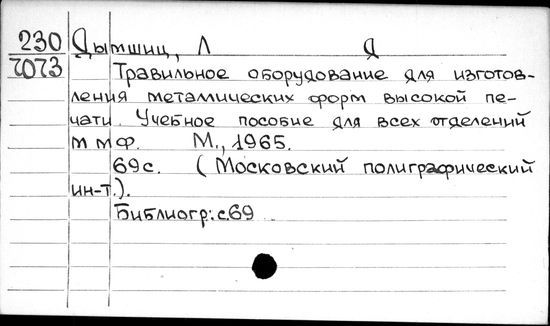 230 Дымшиц, Л Д
7073
Травильное оборудование для изготов-
ления металлических форм высокой пе-
чати. Учебное пособие для всех отделений
ТМФ. М., 1965.
69с. (Московский полиграфический
ин-т.).
Библиогр: с.69